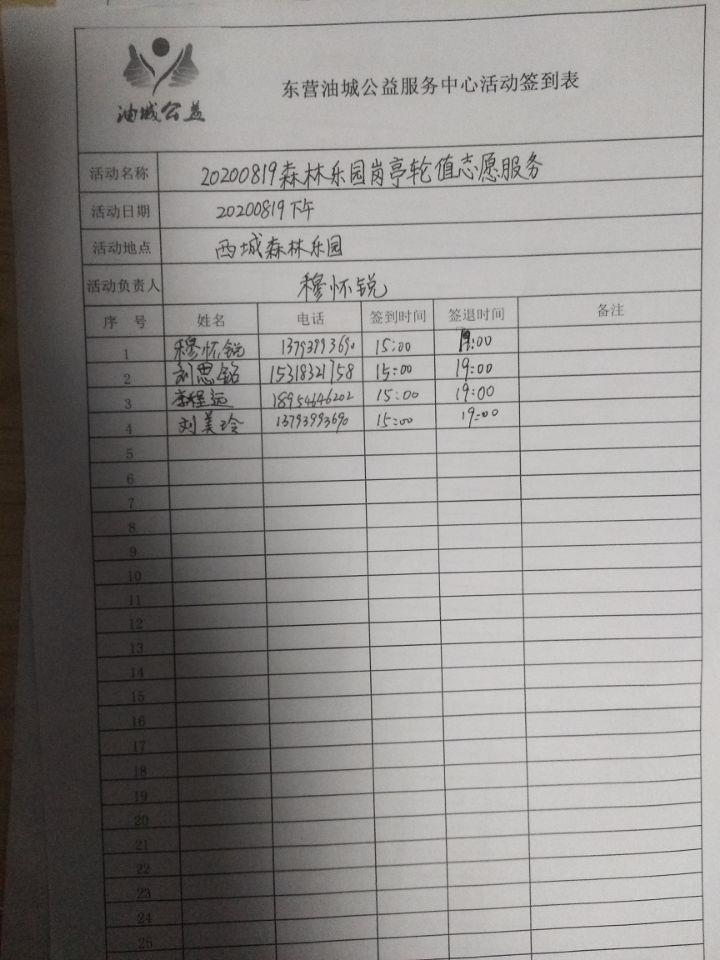 油城公益
东营油城公益服务中心活动签到表
活动名称 20200819森林乐园岗亭轮值志愿服务
活动日期 20200819下午
活动地点 西城森林乐园
活动负责人 穆怀锐
序号 姓名 电话 签到时间 签退时间 备注
1 穆怀锐 13793993690 15:00 19:00
2 刘思铭 15318321758 15:00 19:00
3 程远 18954646202 15:00 19:00
4 刘美玲 13793993690 15:00 19:00
5
6
7
8
9
10
11
12
13
14
15
16
17
18
19
20
21
22
23
24
25